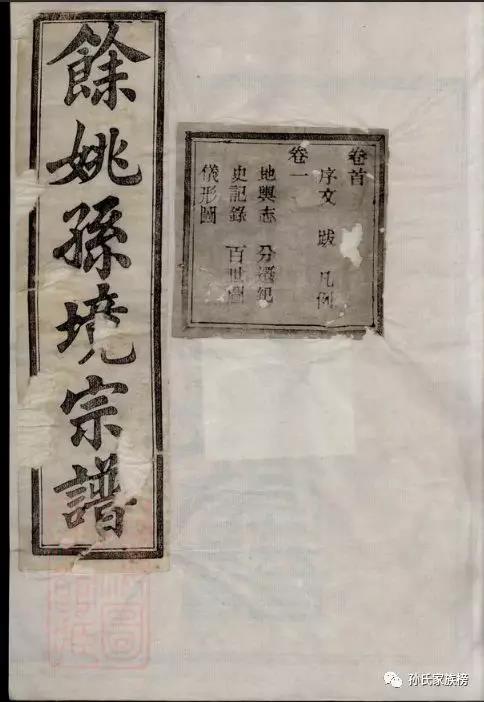 餘姚孫境宗譜
卷首
序文 跋 凡例
卷一
地輿志 分遷紀
史記錄 百世圖
儀形圖
孙氏家族榜